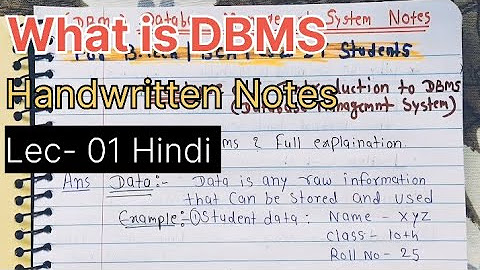 What is DBMS
System Notes
For B.Tech | BCA Students
Handwritten Notes
duction to DBMS
(Database Managemnt System)
Lec- 01 Hindi
ms & Full explaination.
Ans Data:- Data is any raw information
that can be stored and used
Example:- ① Student data: Name - XYZ
Class - 10th
Roll No - 25